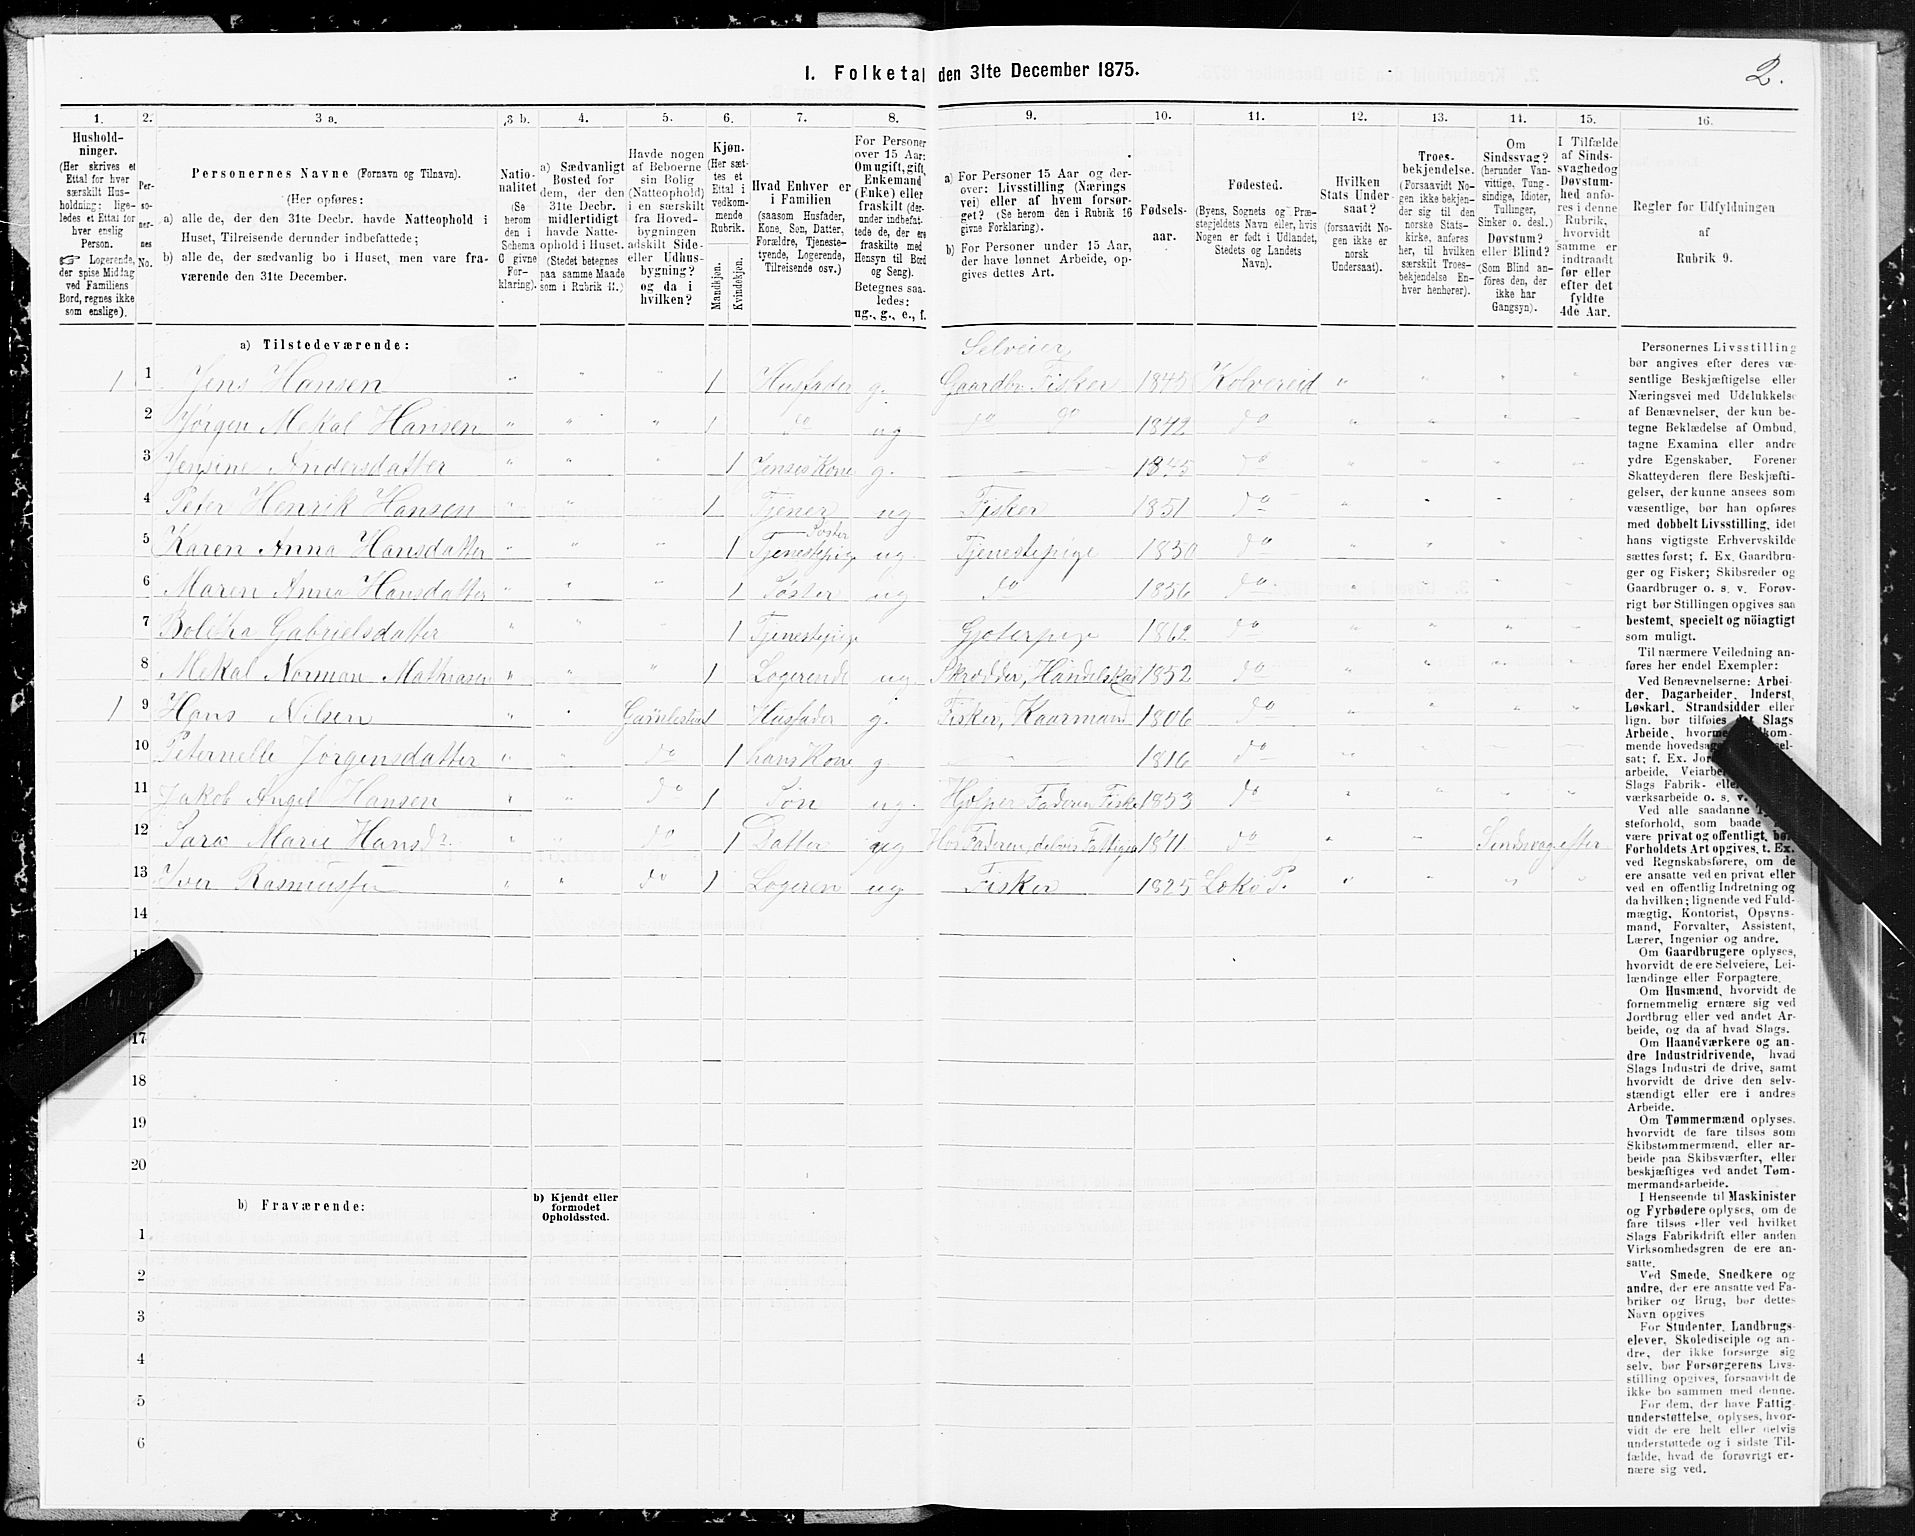 I. Folketal den 31te December 1875.
2.
1.
Hushold-
ninger.
(Her skrives et
Ettal for hver
særskilt Hus-
holdning; lige-
ledes et Ettal for
hver enslig
Person.
☞ Logerende,
der spise Middag
ved Familiens
Bord, regnes ikke
som enslige).
2.
Per-
so-
ner-
nes
No.
3 a.
Personernes Navne (Fornavn og Tilnavn).
(Her opføres:
a) alle de, der den 31te Decbr. havde Natteophold i
Huset, Tilreisende derunder indbefattede;
b) alle de, der sædvanlig bo i Huset, men vare fra-
værende den 31te December.
3 b.
Natio-
nalitet
(Se
herom
den i
Schema
C givne
For-
klaring).
4.
a) Sædvanligt
Bosted for
dem, der den
31te Decbr.
midlertidigt
havde Natte-
ophold i Huset.
(Stedet betegnes
paa samme Maade
som i Rubrik 11.)
5.
Havde nogen
af Beboerne
sin Bolig
(Natteophold)
i en særskilt
fra Hoved-
bygningen
adskilt Side-
eller Udhus-
bygning?
og da i
hvilken?
6.
Kjøn.
(Her sæt-
tes et
Ettal i
vedkom-
mende
Rubrik.
Mandkjøn.
Kvindekjøn.
7.
Hvad Enhver er
i Familien
(saasom Husfader,
Kone, Søn, Datter,
Forældre, Tjeneste-
tyende, Logerende,
Tilreisende osv.)
8.
For Personer
over 15 Aar:
Om ugift, gift,
Enkemand
(Enke) eller
fraskilt (der-
under indbefat-
tede de, der ere
fraskilte med
Hensyn til Bord
og Seng).
Betegnes saa-
ledes:
ug., g., e., f.
9.
a) For Personer 15 Aar og der-
over: Livsstilling (Nærings
vei) eller af hvem forsør-
get? (Se herom den i Rubrik 16
givne Forklaring).
b) For Personer under 15 Aar,
der have lønnet Arbeide, op-
gives dettes Art.
10.
Fødsels-
aar.
11.
Fødested.
(Byens, Sognets og Præ-
stegjeldets Navn eller, hvis
Nogen er født i Udlandet,
Stedets og Landets
Navn).
12.
Hvilken
Stats Under-
saat?
(forsaavidt No-
gen ikke er
norsk
Undersaat).
13.
Troes-
bekjendelse.
(Forsaavidt No-
gen ikke bekjen-
der sig til den
norske Stats-
kirke, anføres
her, til hvilken
særskilt Troes-
bekjendelse En-
hver henhører).
14.
Om
Sindssvag?
(herunder Van-
vittige, Tung-
sindige, Idioter,
Tullinger,
Sinker o. desl.)
Døvstum?
eller Blind?
(Som Blind an-
føres den, der
ikke har
Gangsyn).
15.
I Tilfælde
af Sinds-
svaghed og
Døvstum-
hed anfø-
res i denne
Rubrik,
hvorvidt
samme er
indtraadt
før eller
efter det
fyldte
4de Aar.
16.
Regler for Udfyldningen
af
Rubrik 9.
a) Tilstedeværende:
Selveier,
1 1 Jens Hansen " " " 1 Husfader g. Gaardbr. Fisker 1845 Kolvereid " " " "
2 Jørgen Mekal Hansen " " " 1 do ug do do 1842 do " " " "
3 Jensine Andersdatter " " " 1 Jenses Kone g. 1845 do " " " "
4 Peter Henrik Hansen " " " 1 Tjener ug Fisker 1851 do " " " "
Søster
5 Karen Anna Hansdatter " " " 1 Tjenestepige ug Tjenestepige 1850 do " " " "
6 Maren Anna Hansdatter " " " 1 Søster ug do 1856 do " " " "
7 Boletta Gabrielsdatter " " " 1 Tjenestepige Gjeterpige 1862 do " " " "
8 Mekal Norman Mathiasen " " " 1 Logerende ug Skrædder, 1852 do " " " "
1 9 Hans Nilsen " " 1 Husfader g. Fisker, Kaarmand 1806 do " " " "
10 Peternelle Jørgensdatter " " do 1 hans Kone g. 1816 do " " " "
11 Jakob Angel Hansen " " do 1 Søn ug. Hjelper Faderen Fiske 1853 do " " " "
12 Sara Marie Hansdr. " " do 1 Datter ug Hos Faderen, delvis Fattigen do " " Sindsvag efter
13 Iver Rasmussen " " do 1 Logeren ug Fisker 1825 Lekø P. " " " "
14
17
18
19
20
b) Fraværende:
b) Kjendt eller
formodet
Opholdssted.
1
2
3
4
5
6
Personernes Livsstilling
bør angives efter deres væ-
sentlige Beskjæftigelse eller
Næringsvei med Udelukkelse
af Benævnelser, der kun be-
tegne Beklædelse af Ombud,
tagne Examina eller andre
ydre Egenskaber. Forener
Skatteyderen flere Beskjæfti-
gelser, der kunne ansees som
væsentlige, bør han opføres
med dobbelt Livsstilling, idet
hans vigtigste Erhvervskilde
sættes først; f. Ex. Gaardbru-
ger og Fisker; Skibsreder og
Gaardbruger o. s. v. Forøv-
rigt bør Stillingen opgives saa
bestemt, specielt og nöiagtigt
som muligt.
Til nærmere Veiledning an-
føres her endel Exempler:
Ved Benævnelserne: Arbei-
der, Dagarbeider, Inderst,
Løskarl, Strandsidder eller
lign. bør tilføies det Slags
Arbeide,
mende
sat; f. Ex.
arbeide,
Slags Fabrik-
værksarbeide o. s. v.
Ved alle saadanne
steforhold, som baade
være privat og offentligt, bør
Forholdets Art opgives, t. Ex.
ved Regnskabsførere, om de
ere ansatte ved en privat eller
ved en offentlig Indretning og
da hvilken; lignende ved Fuld-
mægtig, Kontorist, Opsyns-
mand, Forvalter, Assistent,
Lærer, Ingeniør og andre.
Om Gaardbrugere oplyses,
hvorvidt de ere Selveiere, Lei-
lændinge eller Forpagtere.
Om Husmænd, hvorvidt de
fornemmelig ernære sig ved
Jordbrug eller ved andet Ar-
beide, og da af hvad Slags.
Om Haandværkere og an-
dre Industridrivende, hvad
Slags Industri de drive, samt
hvorvidt de drive den selv-
stændigt eller ere i andres
Arbeide.
Om Tømmermænd oplyses,
hvorvidt de fare tilsøs som
Skibstømmermænd, eller ar-
beide paa Skibsværfter, eller
beskjæftiges ved andet Tøm-
mermandsarbeide.
I Henseende til Maskinister
og Fyrbødere oplyses, om de
fare tilsøs eller ved hvilket
Slags Fabrikdrift eller anden
Virksomhedsgren de ere an-
satte.
Ved Smede, Snedkere og
andre, der ere ansatte ved Fa-
briker og Brug, bør dettes
Navn opgives
For Studenter, Landbrugs-
elever, Skoledisciple og an-
dre, der ikke forsørge sig
selv, bør Forsørgerens Livs-
stilling opgives, forsaavidt de
ikke bo sammen med denne.
For dem, der have Fattig-
understøttelse, oplyses, hvor-
vidt de ere helt eller delvis
understøttede og i sidste Til-
fælde, hvad de forøvrigt er-
nære sig ved.